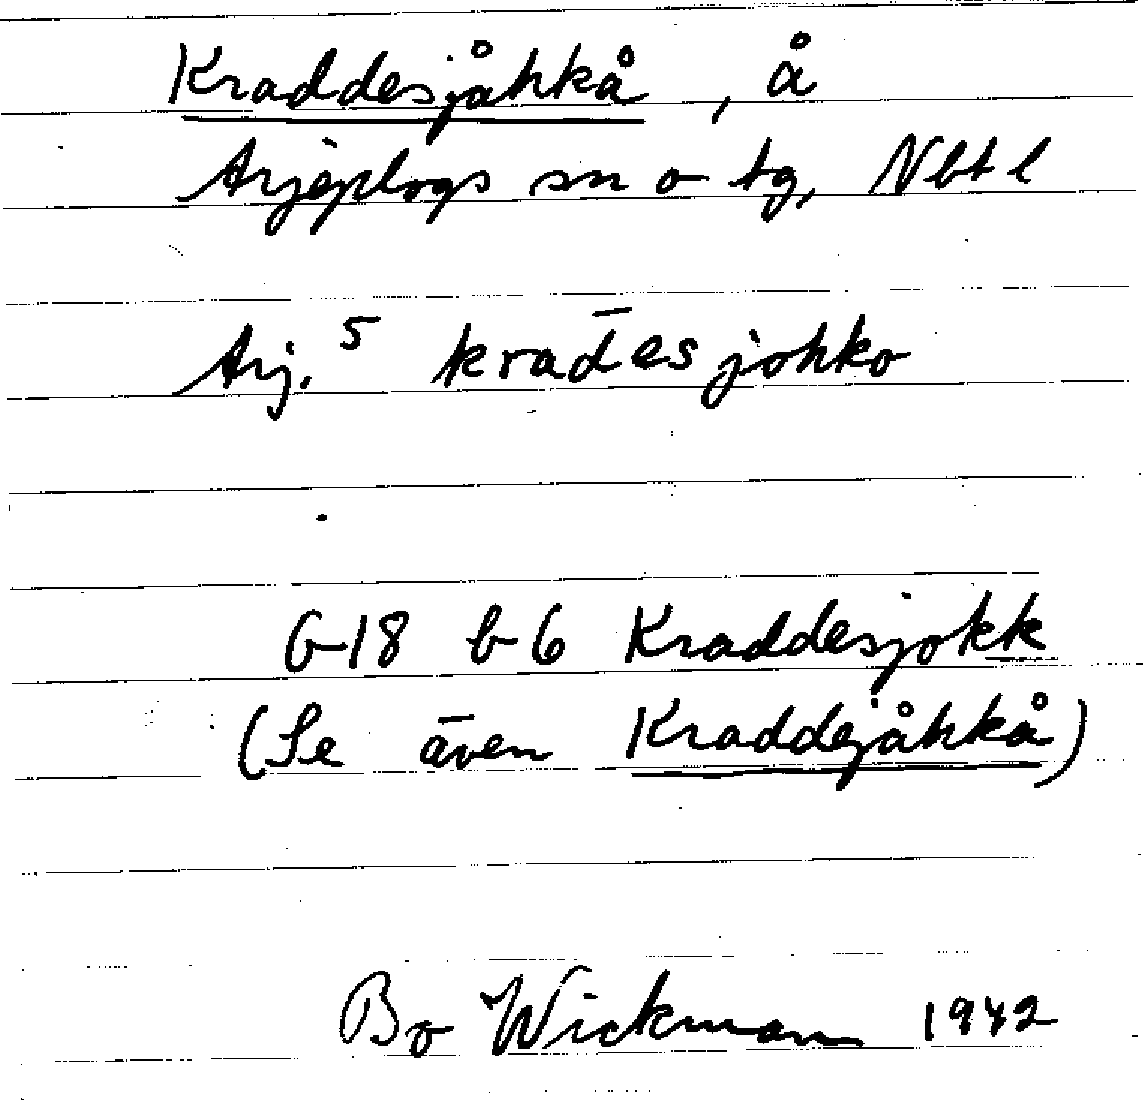 Kraddesjåhkå, å
Arjeplogs sn o tg, Nbt l
Arj. 5 krad̄esjohko
G-18 b-6 Kraddesjokk
(Se även Kraddejåhkå)
Bo Wickmann 1942